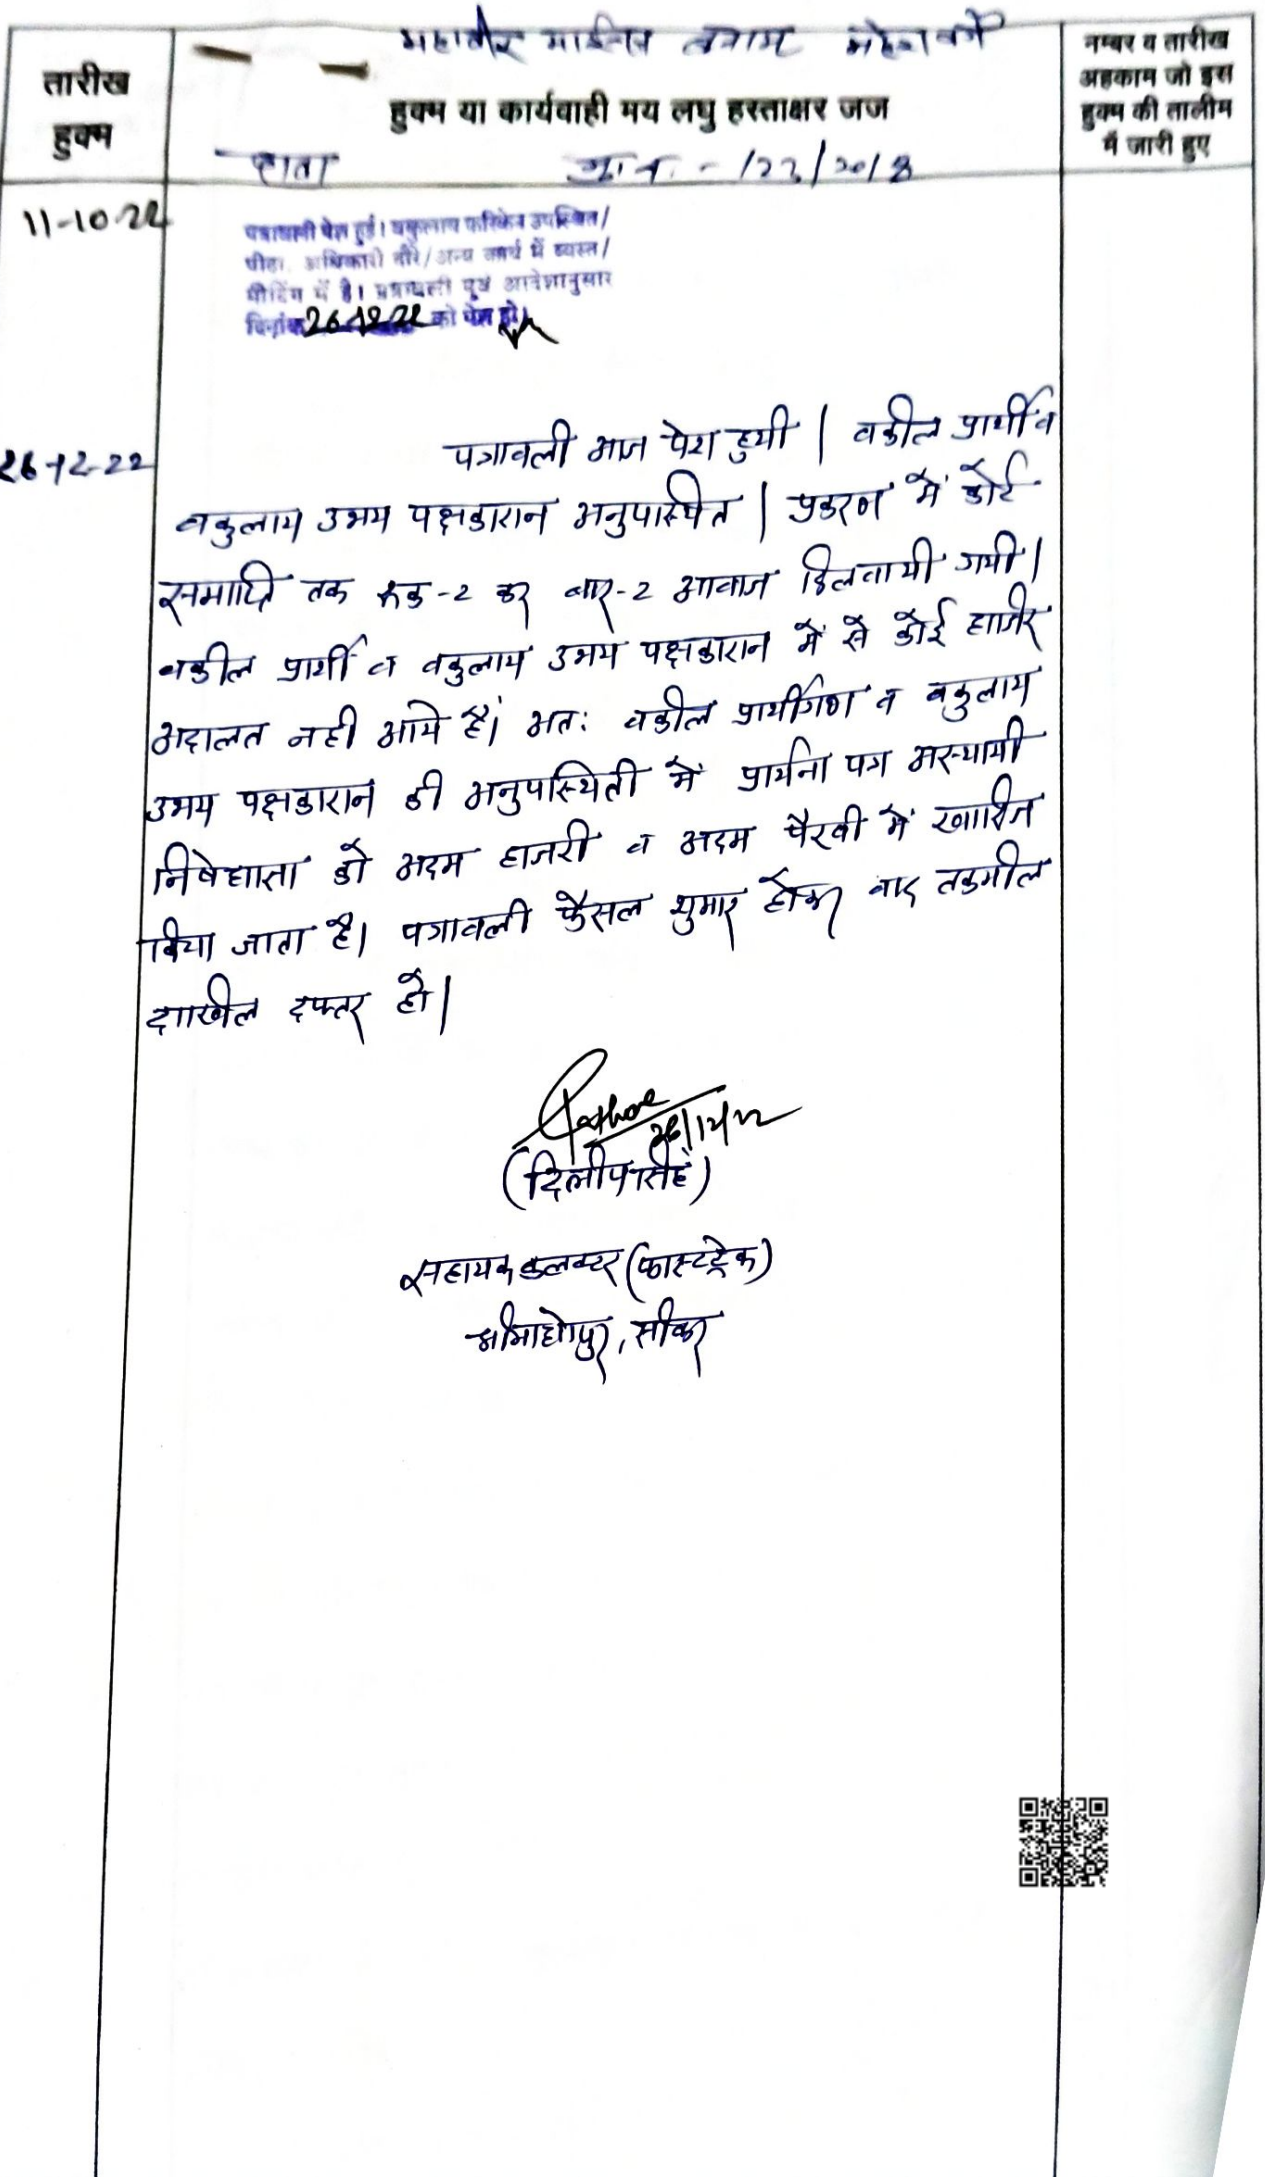 महावीर बनाम
तारीख
हुक्म
हुक्म या कार्यवाही मय लघु हस्ताक्षर जज
नम्बर व तारीख
अहकाम जो इस
हुक्म की तालीम
में जारी हुए
- 122/2018
11-10-22
पत्रावली पेश हुई। वकुलाय फरिकेन उपस्थित/
पीठा. अधिकारी दौरे/अन्य कार्य में व्यस्त/
मीटिंग में है। पत्रावली पूर्व आदेशानुसार
दिनांक 26.12.22 को पेश हो।
26-12-22
पत्रावली आज पेश हुयी | वकील प्रार्थी व
वकुलाय उभय पक्षकारान अनुपास्थित | प्रकरण में कोर्ट
समाप्ति तक रूक-2 कर बार-2 आवाज दिलवायी गयी |
वकील प्रार्थी व वकुलाय उभय पक्षकारान में से कोई हाजिर
अदालत नही आये हैं। अतः वकील प्रार्थीगण व वकुलाय
उभय पक्षकारान की अनुपस्थिती में प्रार्थना पत्र अस्थायी
निषेधाज्ञा को अदम हाजरी व अदम पैरवी में खारिज
किया जाता है। पत्रावली फैसल शुमार होकर बाद तकमील
दाखील दफ्तर हो |
26/12/22
(दिलीप सिंह)
सहायक कलक्टर (फास्टट्रेक)
श्रीमाधोपुर, सीकर